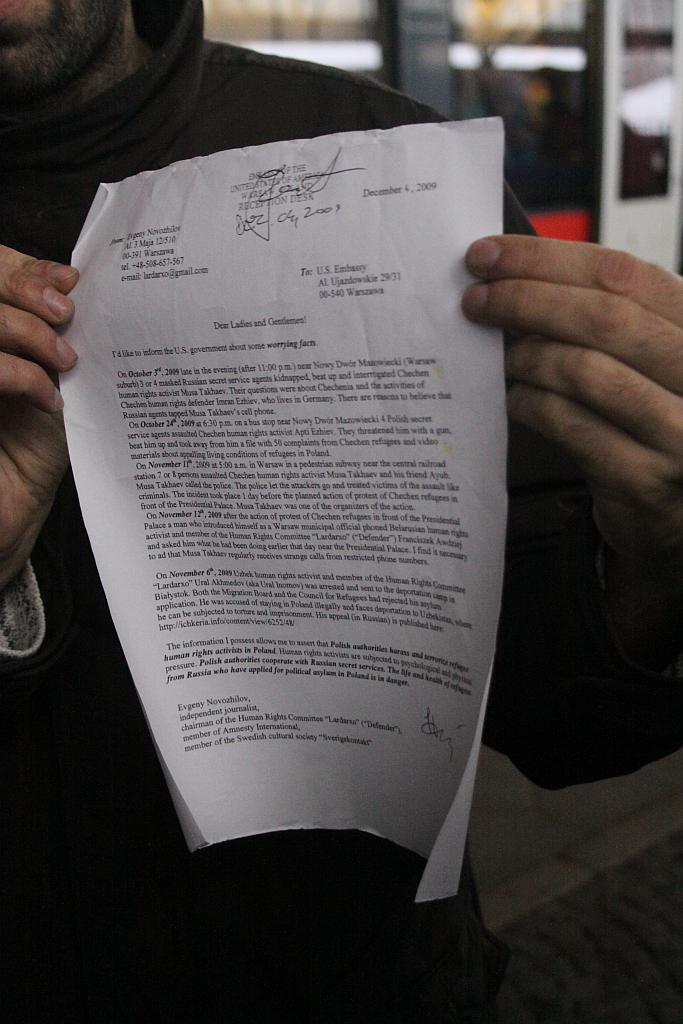 EMBASSY OF THE
UNITED STATES OF AMERICA
WARSAW
RECEPTION DESK
Dec, 04 2009
December 4, 2009
From: Evgeny Novozhilov
Al. 3 Maja 12/510
00-391 Warszawa
tel. +48-508-657-567
e-mail: lardarxo@gmail.com
To: U.S. Embassy
Al. Ujazdowskie 29/31
00-540 Warszawa
Dear Ladies and Gentlemen!
I'd like to inform the U.S. government about some worrying facts.
On October 3rd, 2009 late in the evening (after 11:00 p.m.) near Nowy Dwór Mazowiecki (Warsaw
suburb) 3 or 4 masked Russian secret service agents kidnapped, beat up and interrogated Chechen
human rights activist Musa Takhaev. Their questions were about Chechenia and the activities of
Chechen human rights defender Imran Ezhiev, who lives in Germany. There are reasons to believe that
Russian agents tapped Musa Takhaev's cell phone.
On October 24th, 2009 at 6:30 p.m. on a bus stop near Nowy Dwór Mazowiecki 4 Polish secret
service agents assaulted Chechen human rights activist Apti Ezhiev. They threatened him with a gun,
beat him up and took away from him a file with 50 complaints from Chechen refugees and video
materials about appalling living conditions of refugees in Poland.
On November 11th, 2009 at 5:00 a.m. in Warsaw in a pedestrian subway near the central railroad
station 7 or 8 persons assaulted Chechen human rights activist Musa Takhaev and his friend Ayub.
Musa Takhaev called the police. The police let the attackers go and treated victims of the assault like
criminals. The incident took place 1 day before the planned action of protest of Chechen refugees in
front of the Presidential Palace. Musa Takhaev was one of the organizers of the action.
On November 12th, 2009 after the action of protest of Chechen refugees in front of the Presidential
Palace a man who introduced himself as a Warsaw municipal official phoned Belarusian human rights
activist and member of the Human Rights Committee "Lardarxo" ("Defender") Franciszek Awdziej
and asked him what he had been doing earlier that day near the Presidential Palace. I find it necessary
to ad that Musa Takhaev regularly receives strange calls from restricted phone numbers.
On November 6th, 2009 Uzbek human rights activist and member of the Human Rights Committee
"Lardarxo" Ural Akhmedov (aka Ural Inomov) was arrested and sent to the deportation camp in
Białystok. Both the Migration Board and the Council for Refugees had rejected his asylum
application. He was accused of staying in Poland illegally and faces deportation to Uzbekistan, where
he can be subjected to torture and imprisonment. His appeal (in Russian) is published here:
http://ichkeria.info/content/view/6252/48/
The information I possess allows me to assert that Polish authorities harass and terrorize refugee
human rights activists in Poland. Human rights activists are subjected to psychological and physical
pressure. Polish authorities cooperate with Russian secret services. The life and health of refugees
from Russia who have applied for political asylum in Poland is in danger.
Evgeny Novozhilov,
independent journalist,
chairman of the Human Rights Committee "Lardarxo" ("Defender"),
member of Amnesty International,
member of the Swedish cultural society "Sverigekontakt"